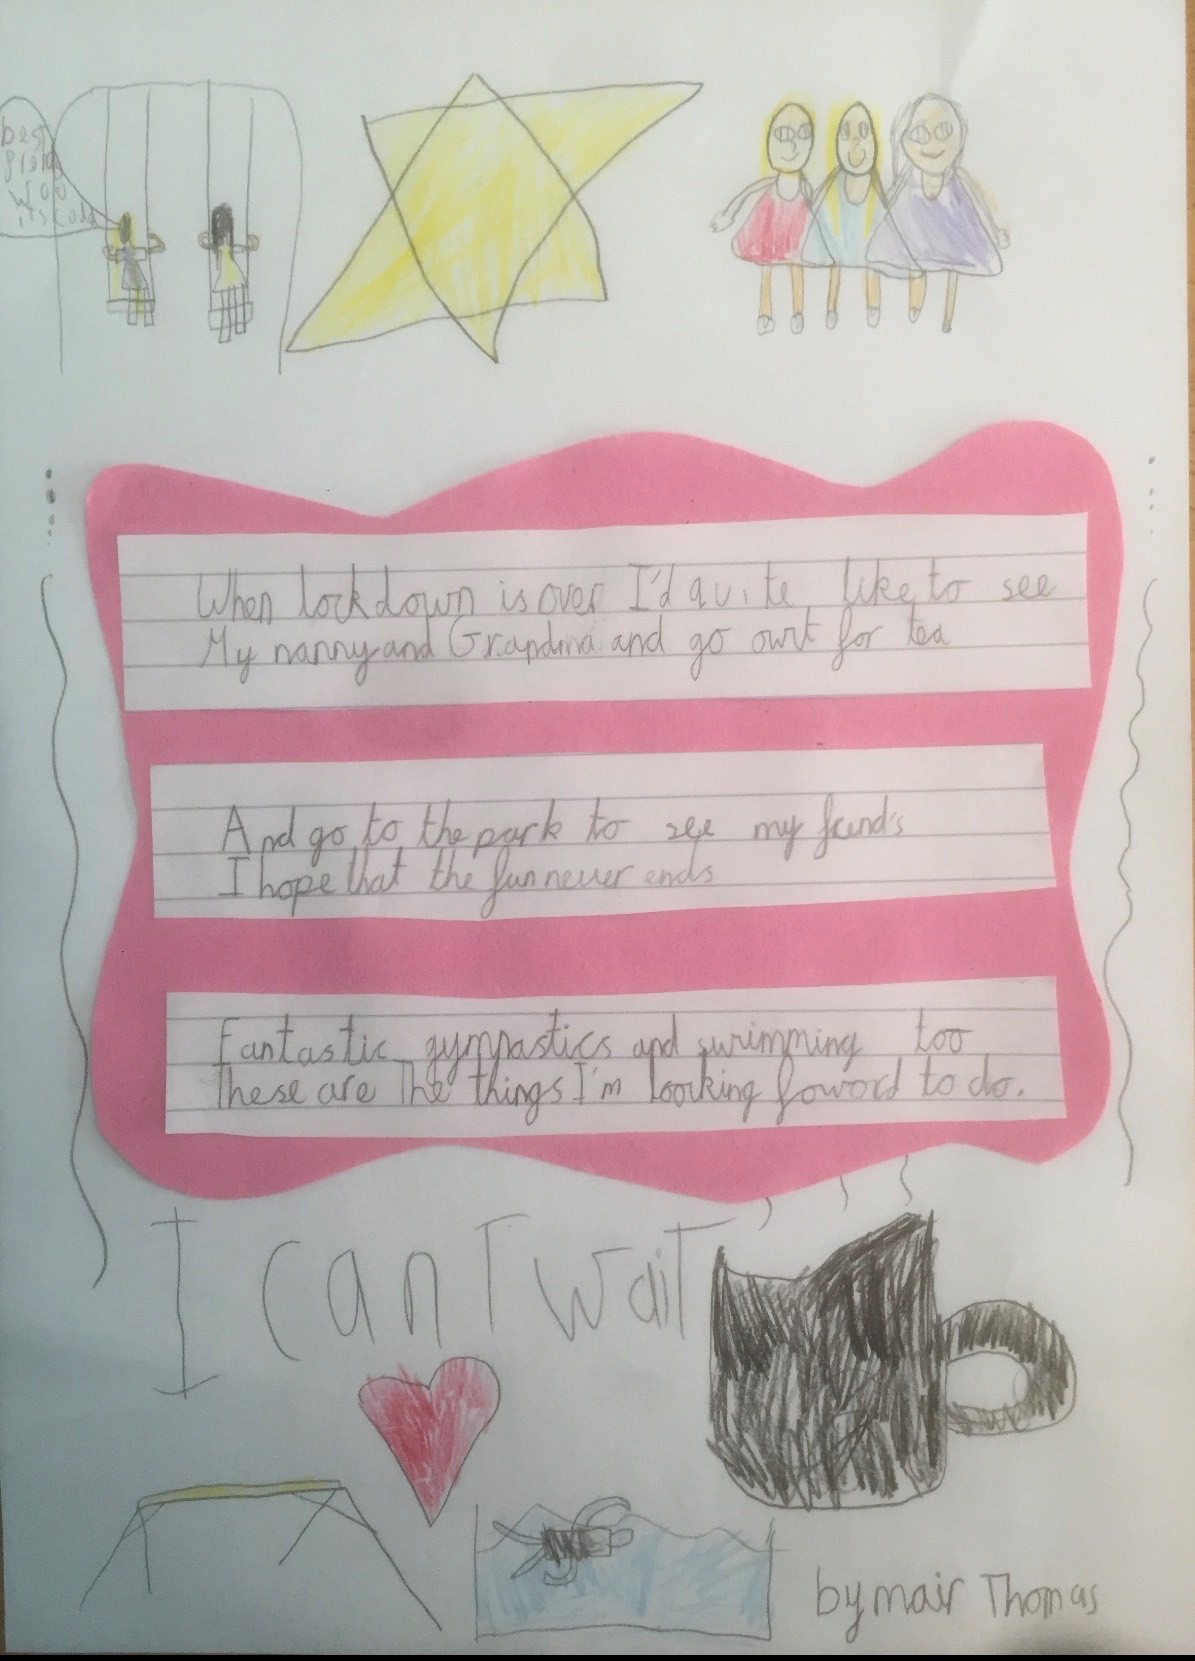 best
friend
Woo
it's cold
When lockdown is over I'd quite like to see
My nanny and Grandma and go owt for tea
And go to the park to see my friends
I hope that the fun never ends
Fantastic gymnastics and swimming too
These are the things I'm looking foword to do.
I can't wait
by mair Thomas